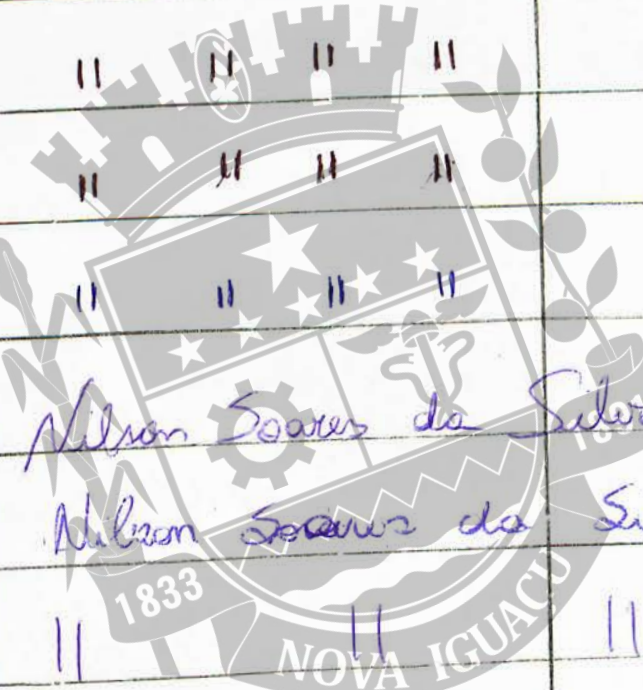 " " " "
" " " "
" " " "
Nilson Soares da Silva
Nilson Soares da
" " "
1833 NOVA IGUAÇU